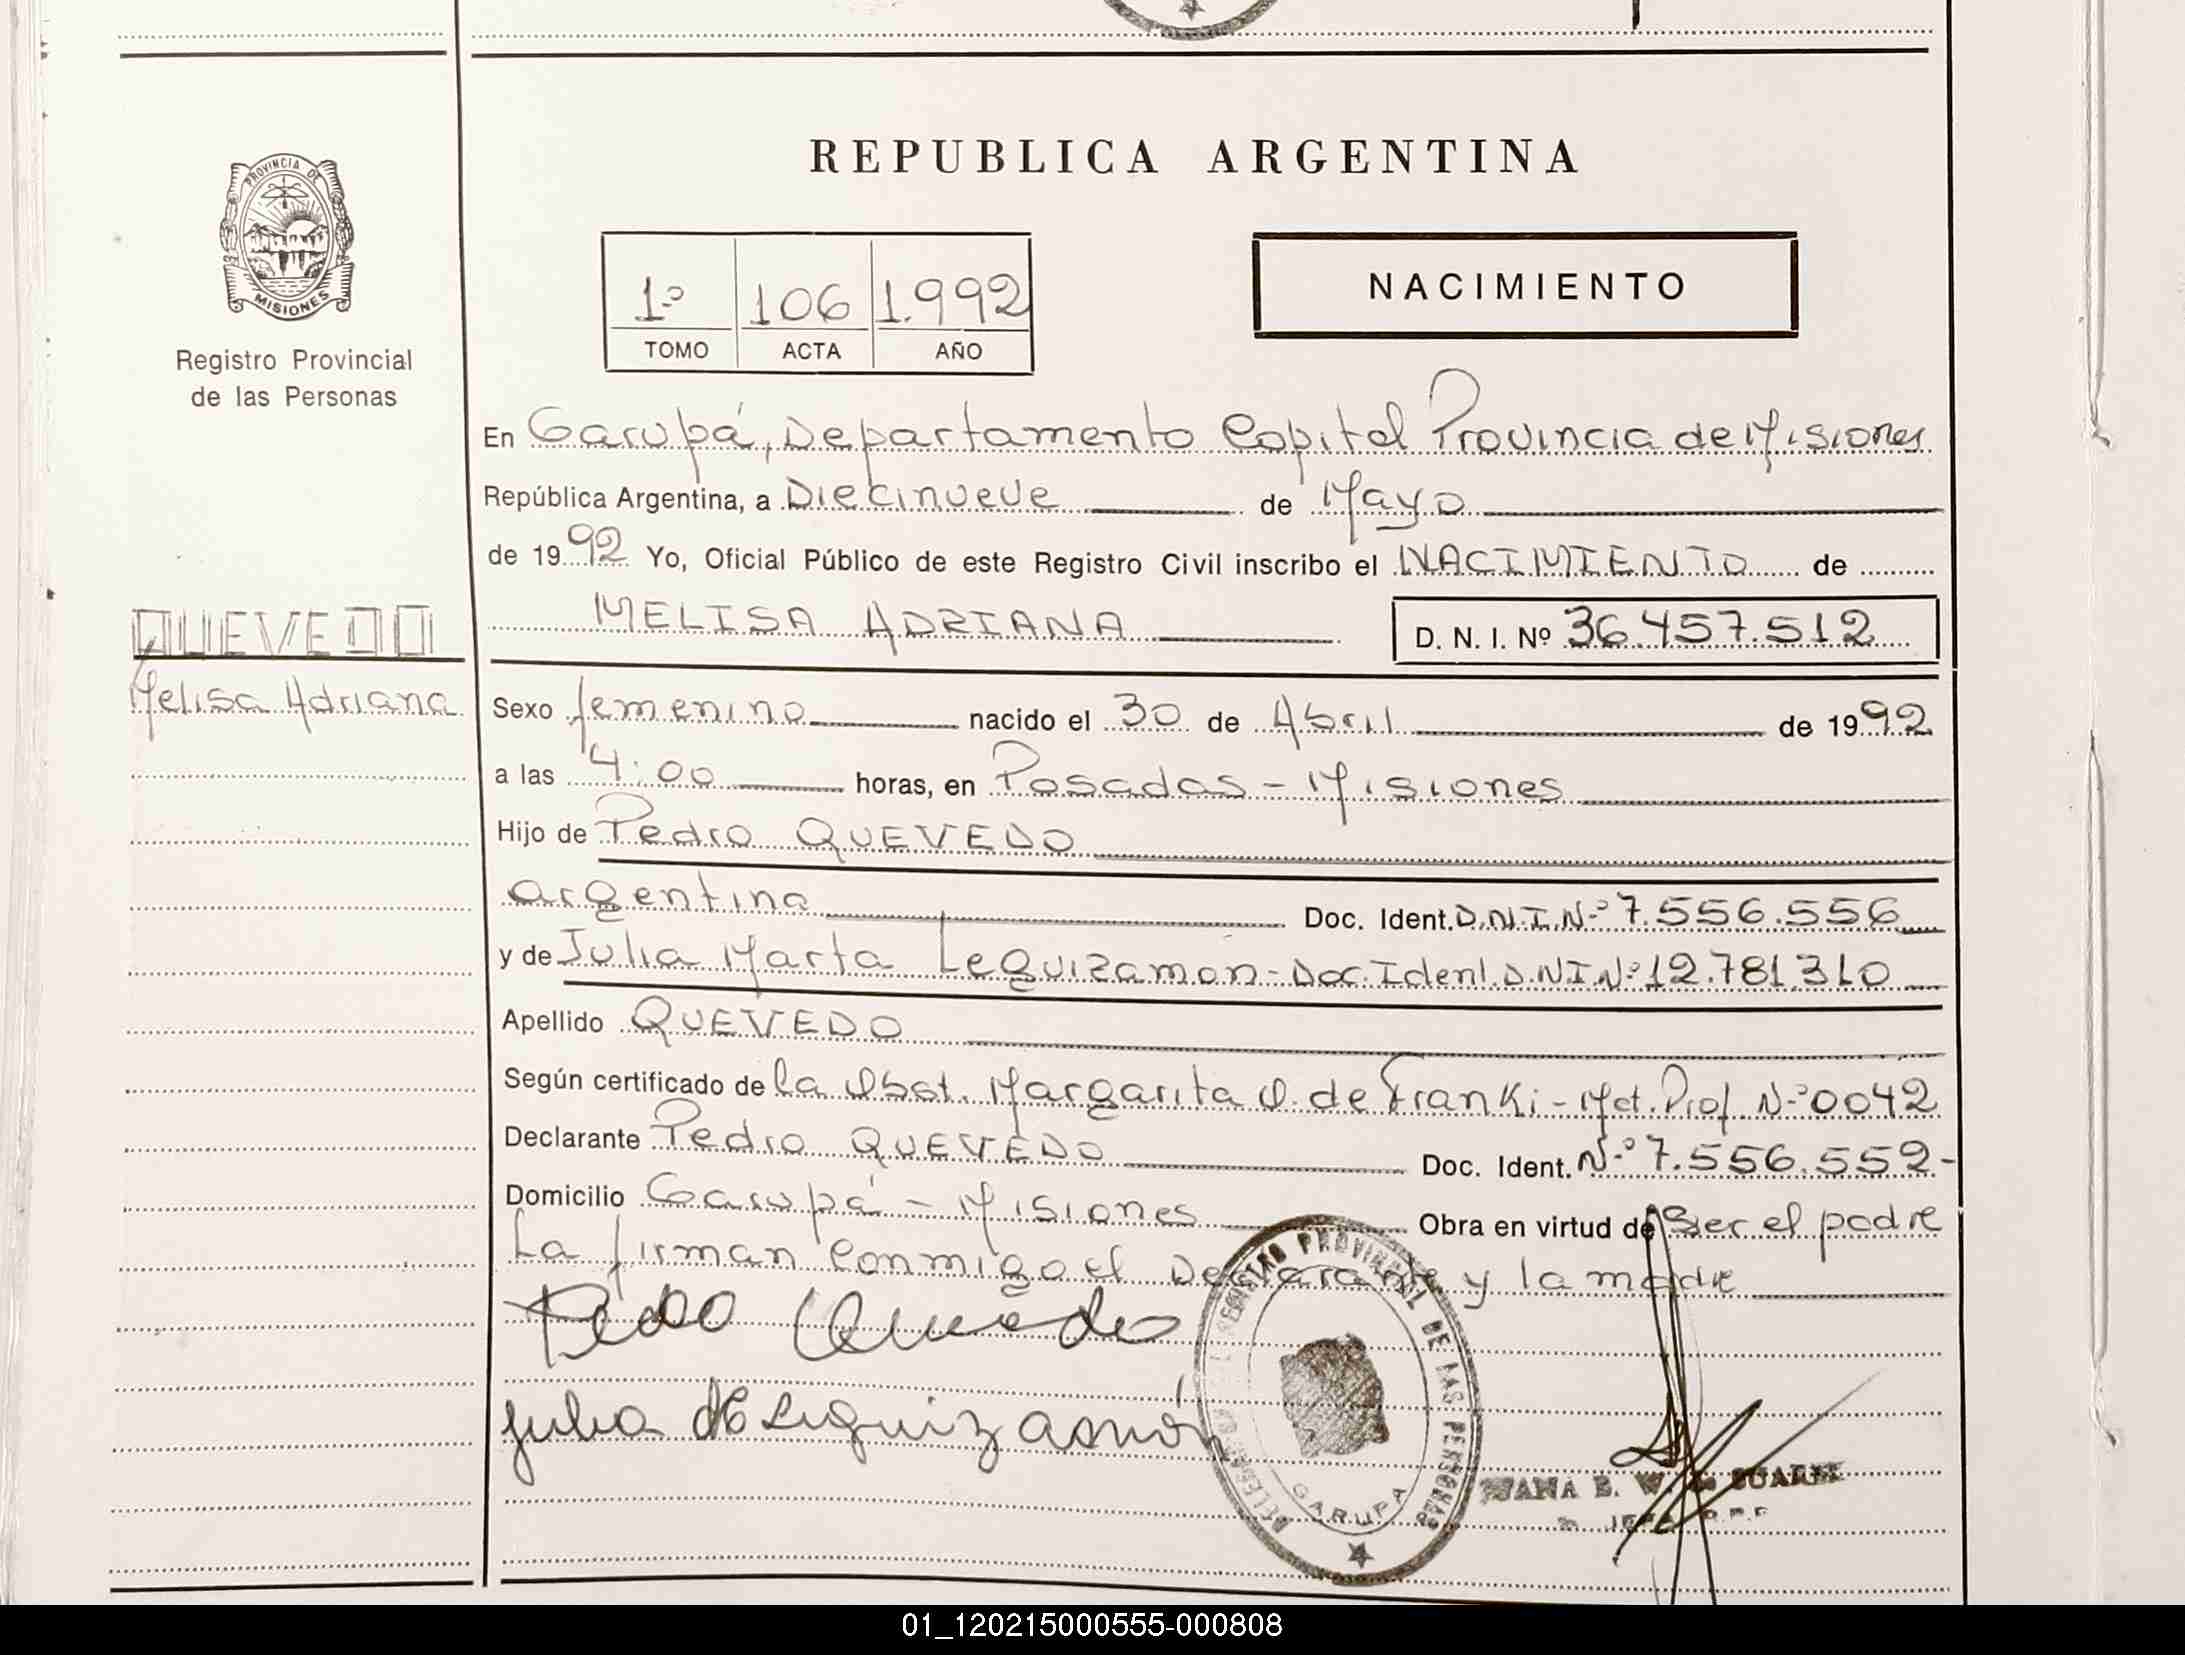 REPUBLICA ARGENTINA
PROVINCIA DE
MISIONES
Registro Provincial
de las Personas
1º 106 1.992
TOMO ACTA AÑO
NACIMIENTO
En Garupá, Departamento Capital Provincia de Misiones
República Argentina, a Diecinueve de Mayo
de 1992 Yo, Oficial Público de este Registro Civil inscribo el NACIMIENTO de
MELISA ADRIANA D. N. I. Nº 36.457.512
QUEVEDO
Melisa Adriana
Sexo femenino nacido el 30 de Abril de 1992
a las 4:00 horas, en Posadas - Misiones
Hijo de Pedro QUEVEDO
argentina Doc. Ident. D.N.I.Nº 7.556.556
y de Julia Marta Leguizamon - Doc. Ident. D.N.I Nº 12.781.310
Apellido QUEVEDO
Según certificado de la Obst. Margarita O. de Franki - Mat. Prof Nº 0042
Declarante Pedro QUEVEDO Doc. Ident. Nº 7.556.552-
Domicilio Garupá - Misiones Obra en virtud de Ser el padre
La firman conmigo el Declarante y la madre
Pedro Quevedo
Julia M Leguizamón
REGISTRO PROVINCIAL DE LAS PERSONAS
GARUPA
JUANA B. W. de SUAREZ
01_120215000555-000808